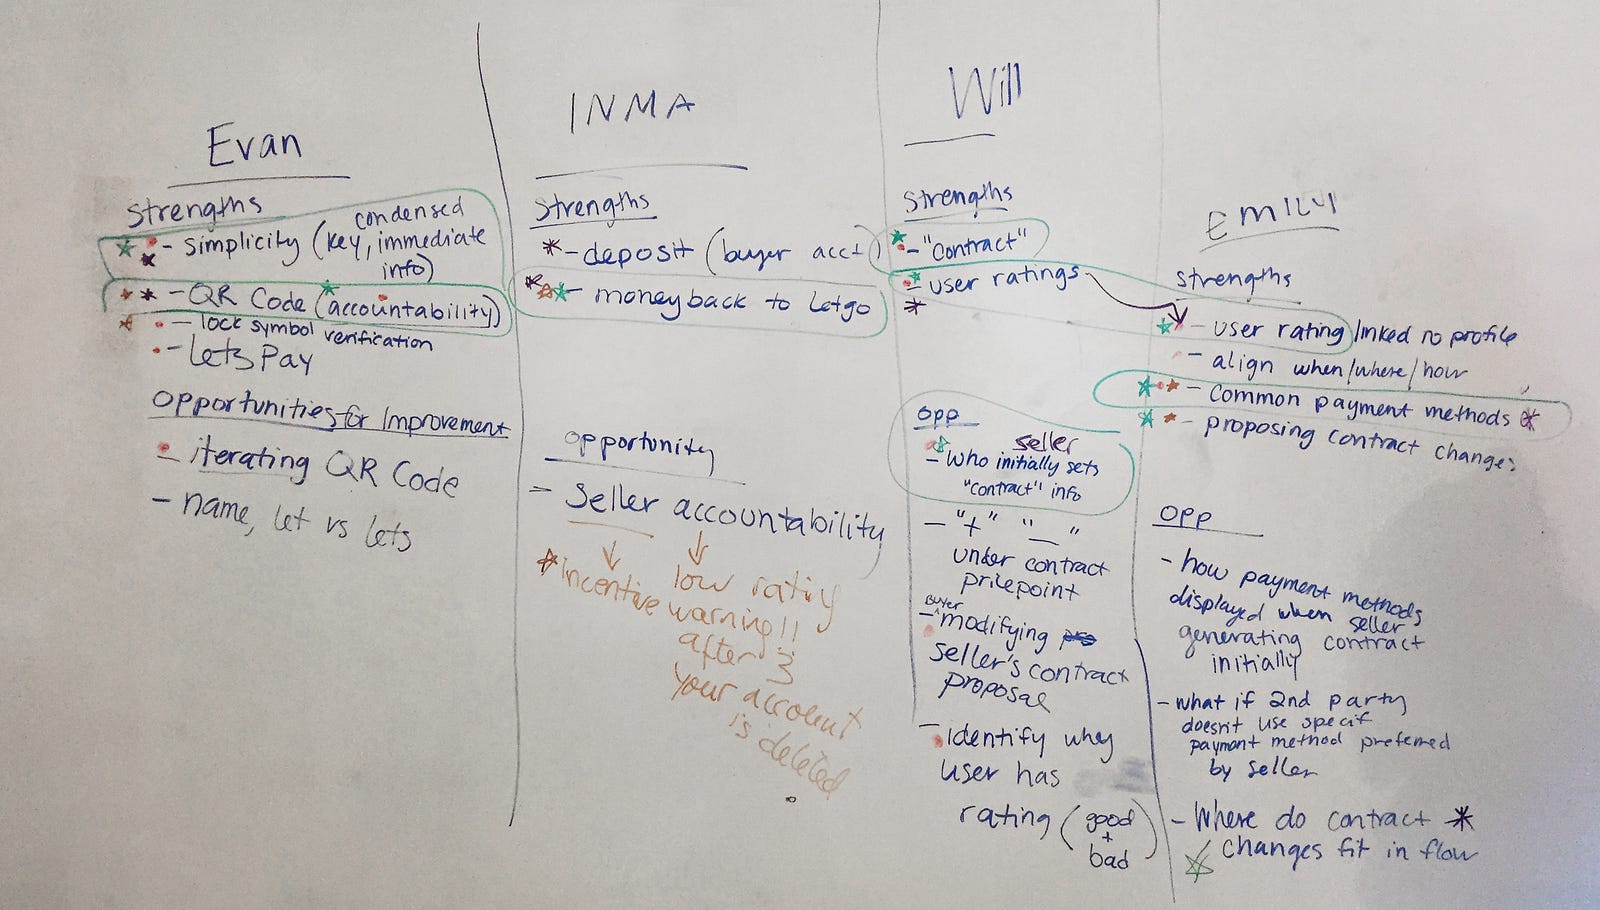 Evan
Strengths
- simplicity (key, immediate
condensed
info)
- QR Code (accountability)
- lock symbol verification
- Lets Pay
Opportunities for Improvement
- iterating QR Code
- name, let vs lets
INMA
Strengths
- deposit (buyer acct)
- moneyback to Letgo
opportunity
- Seller accountability
incentive
low rating
warning!!
after 3
your account
is deleted
Will
Strengths
- "Contract"
- user ratings
opp
seller
- who initially sets
"contract" info
- "+" "_"
under contract
pricepoint
buyer
- modifying
seller's contract
proposal
- identify why
user has
rating (good
+
bad)
EMILY
Strengths
- user rating/linked no profile
- align when/where/how
- Common payment methods
- proposing contract changes
opp
- how payment methods
displayed when seller
generating contract
initially
- what if 2nd party
doesn't use specif
paymont method preferred
by seller
- Where do contract
changes fit in flow